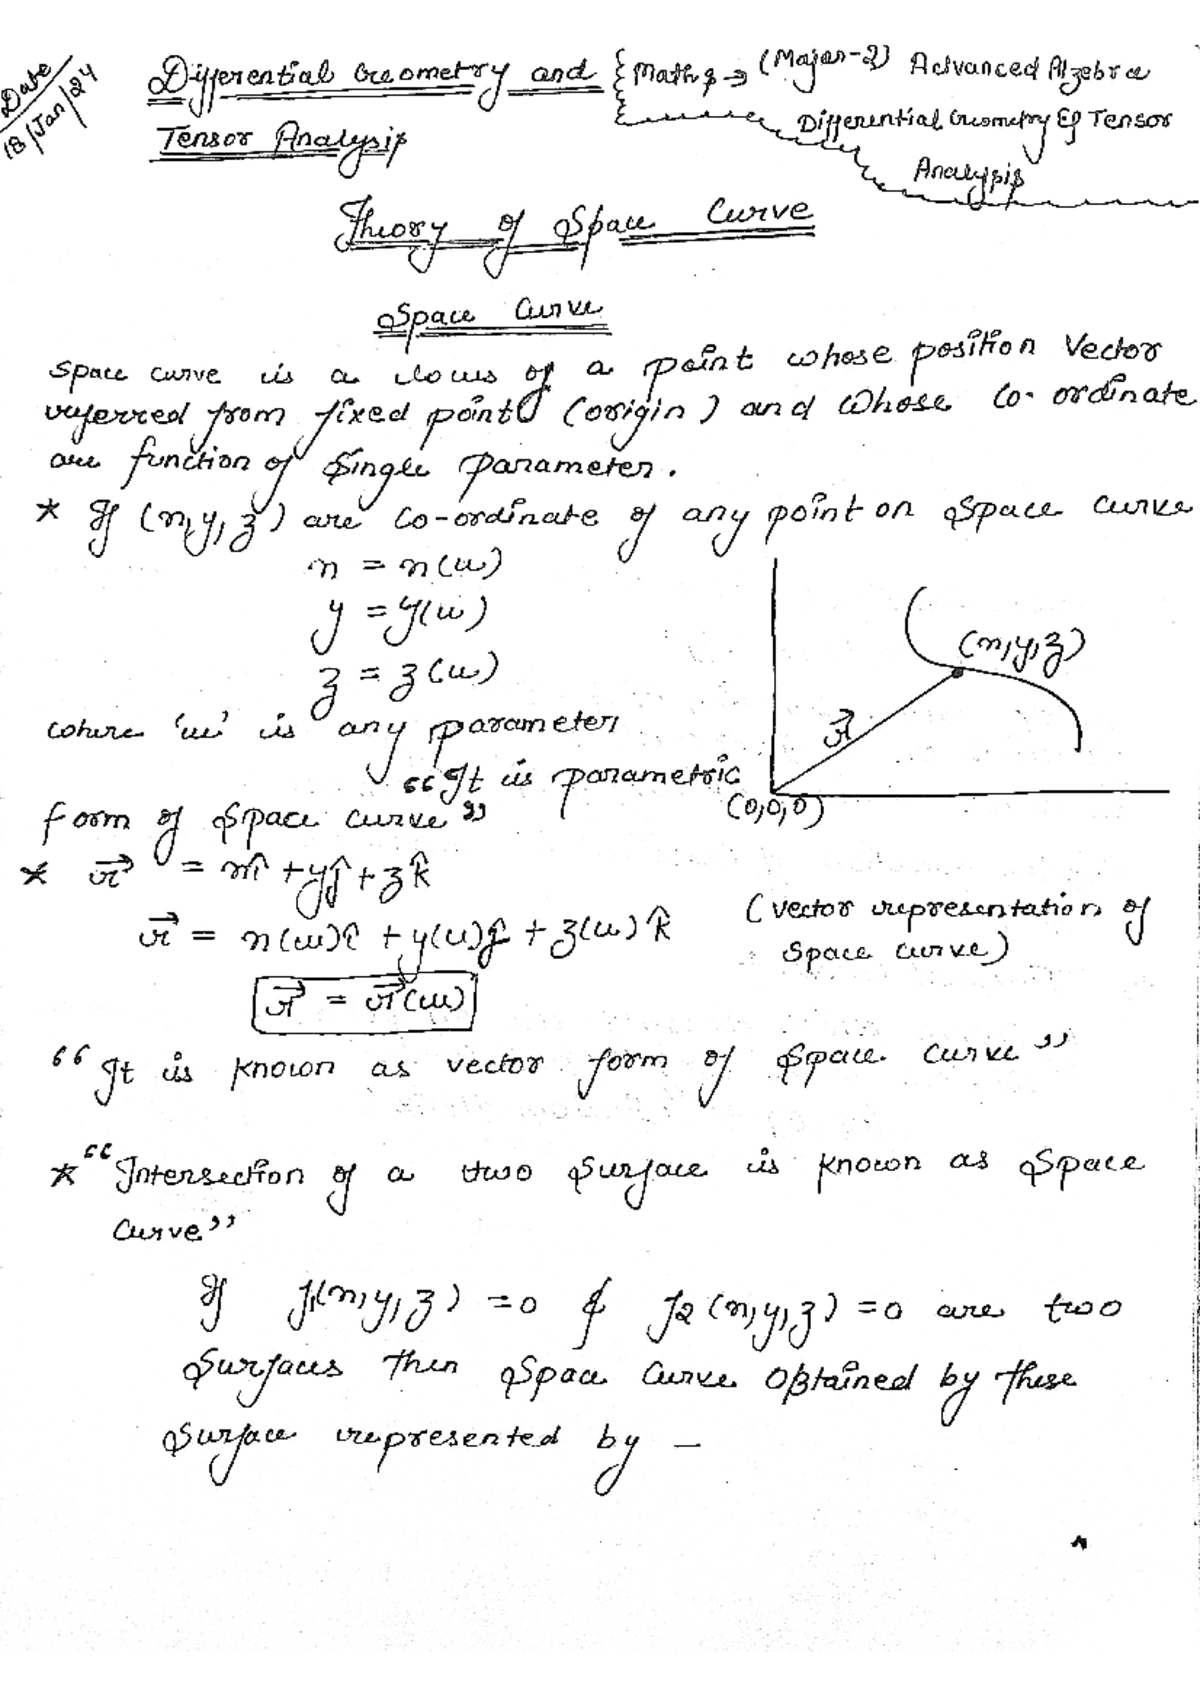 Date
18/Jan/24
Differential Geometry and
Tensor Analysis
Maths → (Major-2) Advanced Algebra
Differential Geometry & Tensor
Analysis
Theory of Space Curve
Space Curve
Space curve is a locus of a point whose position vector
referred from fixed point (origin) and whose co-ordinate
are function of single parameter.
* If (x,y,z) are co-ordinate of any point on space curve
x = x(u)
y = y(u)
z = z(u)
where 'u' is any parameter
"It is parametric
form of space curve"
(x,y,z)
r⃗
(0,0,0)
* r⃗ = xî + yĵ + zk̂
r⃗ = x(u)î + y(u)ĵ + z(u)k̂
(vector representation of
space curve)
r⃗ = r⃗(u)
"It is known as vector form of space curve"
* "Intersection of a two surface is known as space
curve"
If f₁(x,y,z) = 0 & f₂(x,y,z) = 0 are two
surfaces then space curve obtained by these
surface represented by —